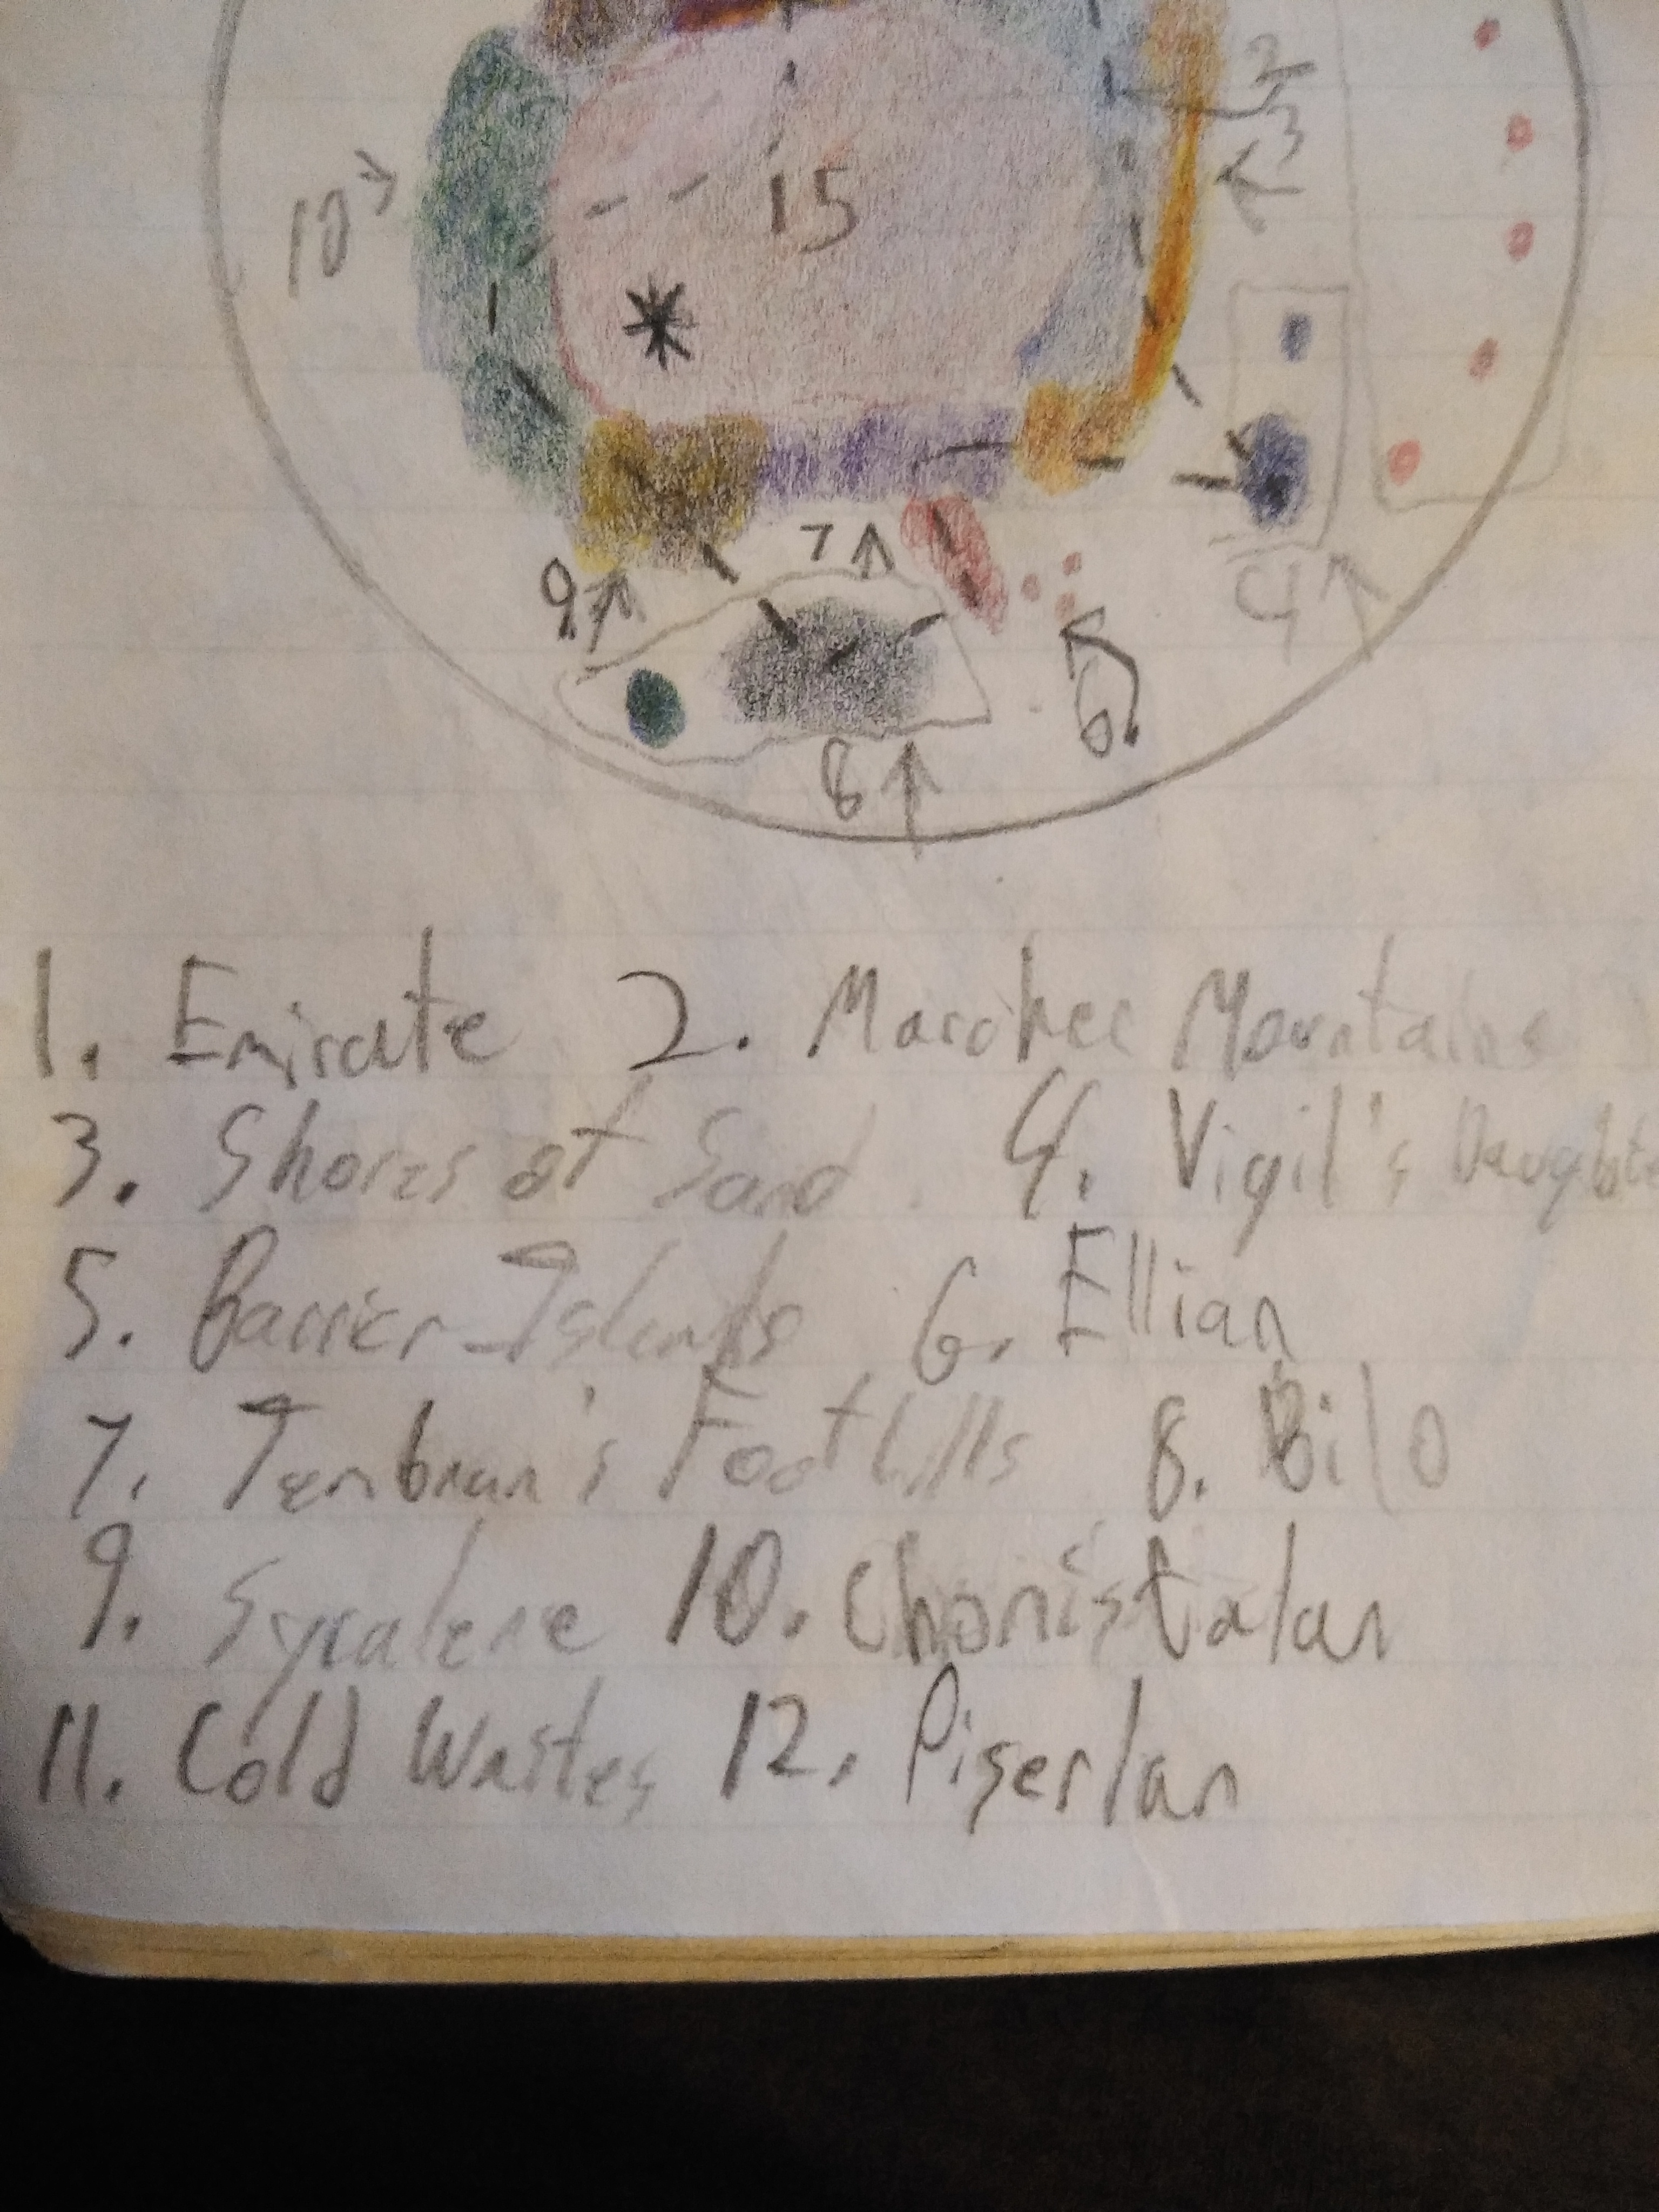 2
3
10
15
4
7
9
6
8
1. Emirate 2. Marches Mountains
3. Shores of Sand 4. Vigil's
5. Barrier Islands 6. Ellian
7. Foothills 8. Bilo
9. Sycalene 10. Chonistalan
11. Cold Wastes 12. Piserlan